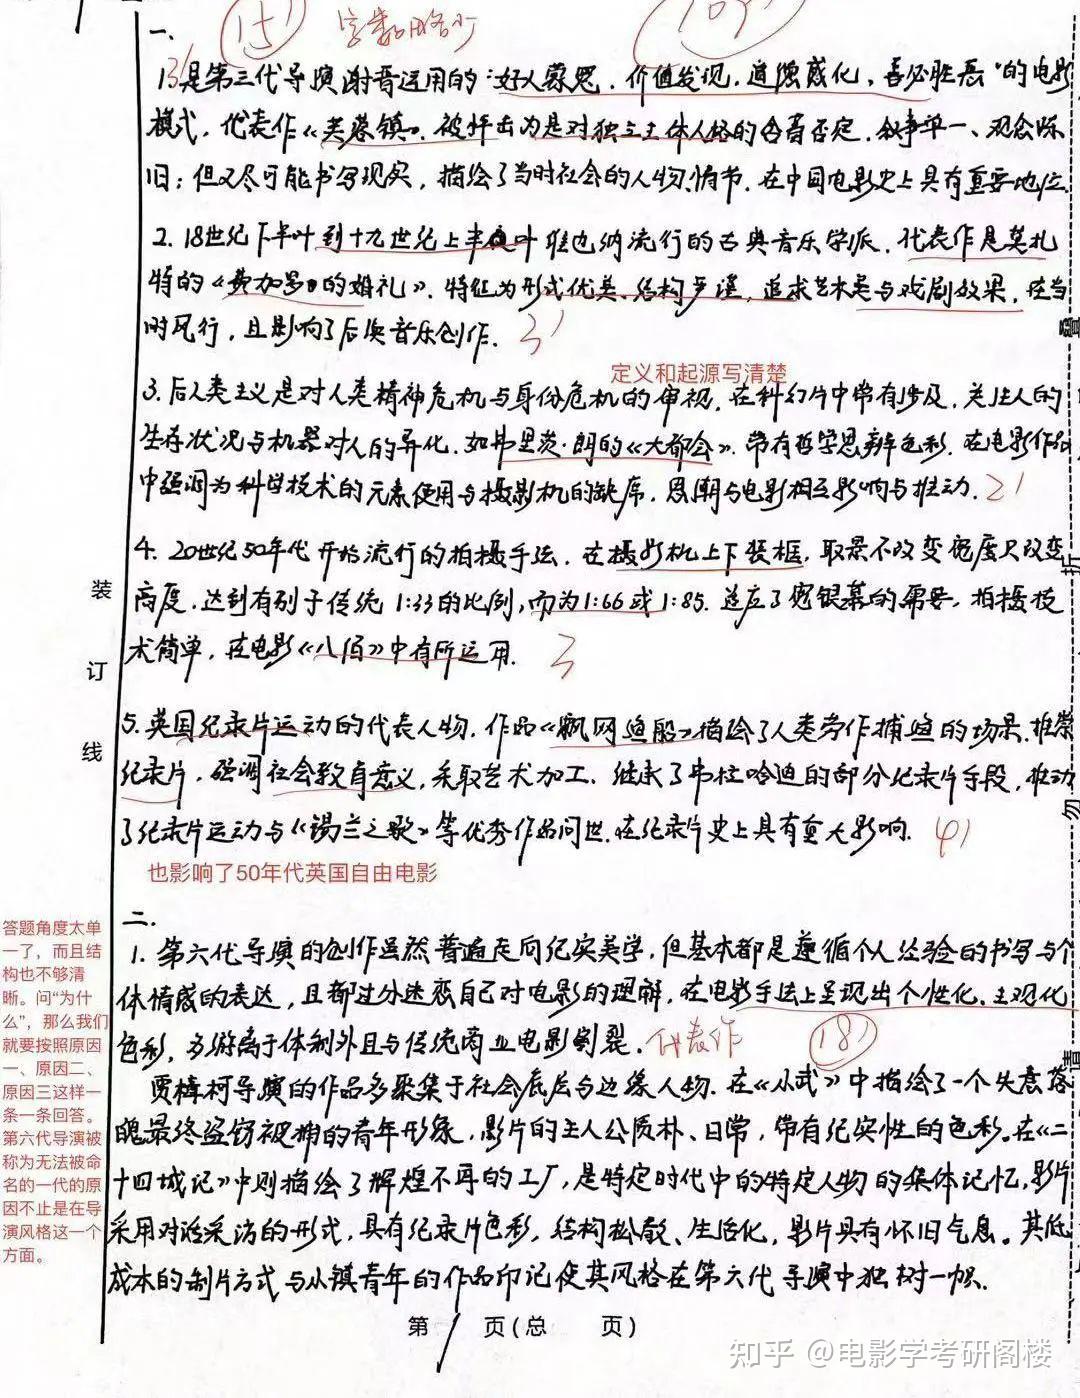 15' 字数略少 109'
一.
1. 是第三代导演谢晋运用的"好人蒙冤、价值发现、道德感化、善必胜恶"的电影
3'
模式，代表作《芙蓉镇》。被抨击为是对独立主体人格的否定，叙事单一、观念陈
旧；但又尽可能书写现实，描绘了当时社会的人物、情节，在中国电影史上具有重要地位。
2. 18世纪下半叶到十九世纪上半叶维也纳流行的古典音乐学派，代表作是莫扎
特的《费加罗的婚礼》。特征为形式优美、结构严谨，追求艺术美与戏剧效果，在当
时风行，且影响了后浪音乐创作。 3'
定义和起源写清楚
3. 后人类主义是对人类精神危机与身份危机的审视，在科幻片中常有涉及，关注人的
生存状况与机器对人的异化，如弗里茨·朗的《大都会》。带有哲学思辨色彩，在电影作品
中强调为科学技术的元素使用与摄影机的缺席，思潮与电影相互影响与推动。 2'
4. 20世纪50年代开始流行的拍摄手法，在摄影机上下装框，取景不改变宽度只改变
高度，达到有别于传统1:33的比例，而为1:66或1:85。适应了宽银幕的需要，拍摄技
术简单，在电影《八佰》中有所运用。 3
5. 英国纪录片运动的代表人物，作品《飘网渔船》描绘了人类劳作捕鱼的场景，推崇
纪录片，强调社会教育意义，采取艺术加工、继承了弗拉哈迪的部分纪录片手段，推动
了纪录片运动与《锡兰之歌》等优秀作品问世，在纪录片史上具有重大影响。 4'
也影响了50年代英国自由电影
二.
1. 第六代导演的创作虽然普遍走向纪实美学，但基本都是遵循个人经验的书写与个
体情感的表达，且都过分迷恋自己对电影的理解，在电影手法上呈现出个性化、主观化
色彩，多游离于体制外且与传统商业电影割裂。 代表作 18'
贾樟柯导演的作品多聚集于社会底层与边缘人物，在《小武》中描绘了一个失意落
魄最终盗窃被捕的青年形象，影片的主人公质朴、日常，带有纪实性的色彩。在《二
十四城记》中则描绘了辉煌不再的工厂，是特定时代中的特定人物的集体记忆，影片
采用对话采访的形式，具有纪录片色彩，结构松散、生活化，影片具有怀旧气息。其低
成本的制片方式与小镇青年的作品印记使其风格在第六代导演中独树一帜。
答题角度太单
一了，而且结
构也不够清
晰。问"为什
么"，那么我们
就要按照原因
一、原因二、
原因三这样一
条一条回答。
第六代导演被
称为无法被命
名的一代的原
因不止是在导
演风格这一个
方面。
装
订
线
叠
折
勿
请
第 1 页(总 页)
知乎 @电影学考研阁楼